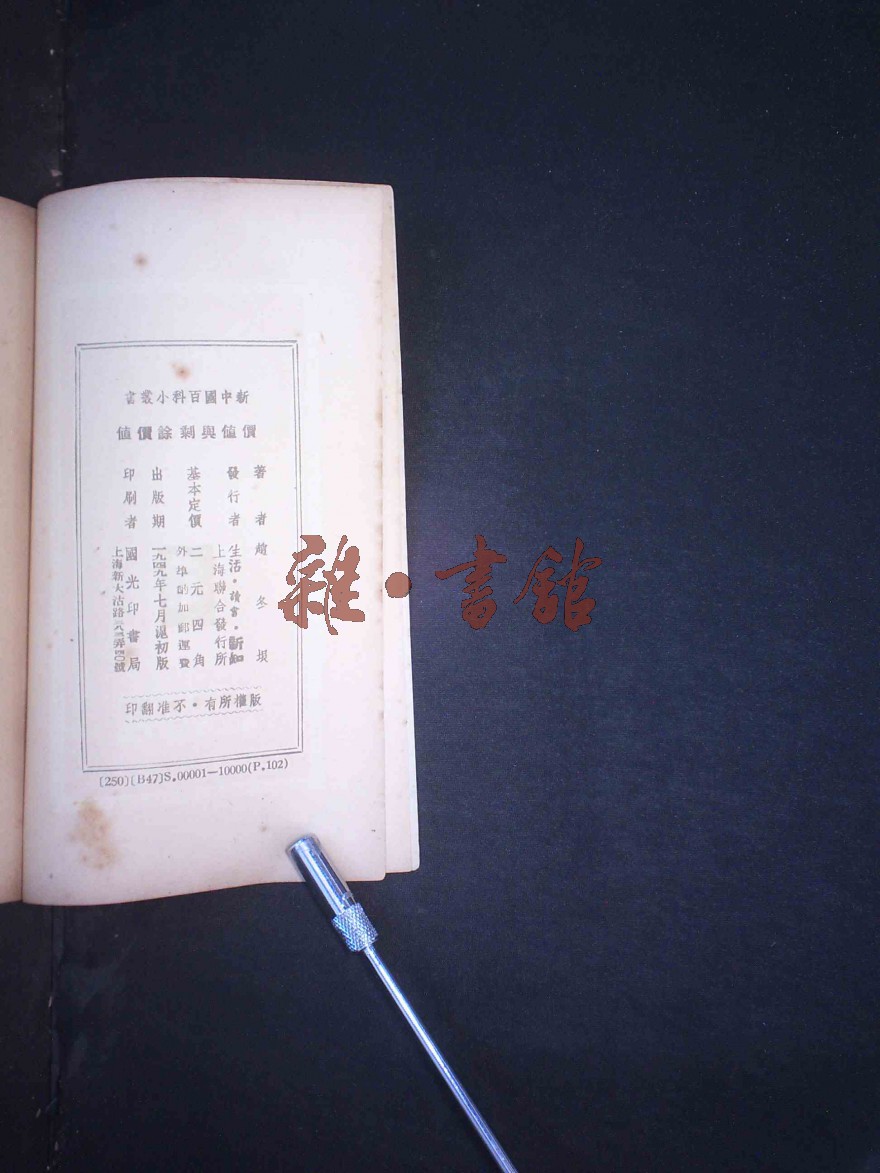 新中國百科小叢書
價值與剩餘價值
著者 趙冬垠
發行者 生活·讀書·新知
上海聯合發行所
基本定價 二元四角
外埠酌加郵運費
出版期 一九四九年七月滬初版
印刷者 國光印書局
上海新大沽路
版權所有·不准翻印
[250][B47]S.00001—10000(P.102)
雜·書館